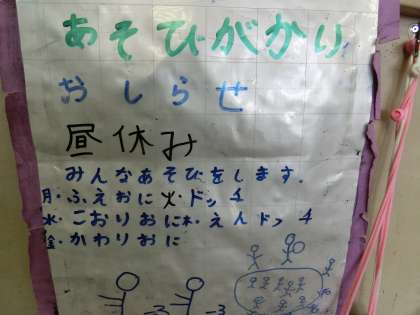 あそびがかり
おしらせ
昼休み
みんなあそびをします.
月・ふえおに 火・ドッチ
水・こおりおに 木・えんドッチ
金・かわりおに